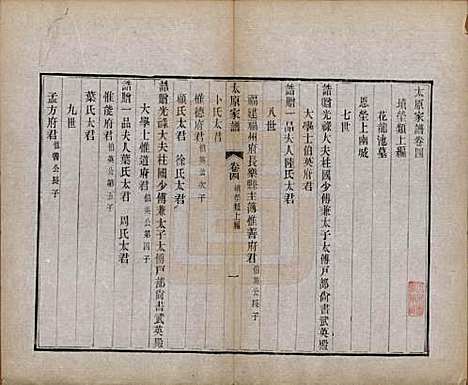 太原家譜卷四
塋塋類上編
花龍池墓
恩塋上南城
七世
誥贈光祿大夫柱國少傅兼太子太傅戶部尚書武英殿
大學士伯英府君
誥贈一品夫人陸氏太君
八世
福建福州府長樂縣主薄惟善府君伯英公長子
太原家譜 卷四 塋塋類上編 一
卜氏太君
惟德府君伯英公次子
顧氏太君 徐氏太君
誥贈光祿大夫柱國少傅兼太子太傅戶部尚書武英殿
大學士惟道府君伯英公第四子
誥贈一品夫人葉氏太君 周氏太君
惟能府君伯英公第五子
葉氏太君
九世
孟方府君惟善公長子